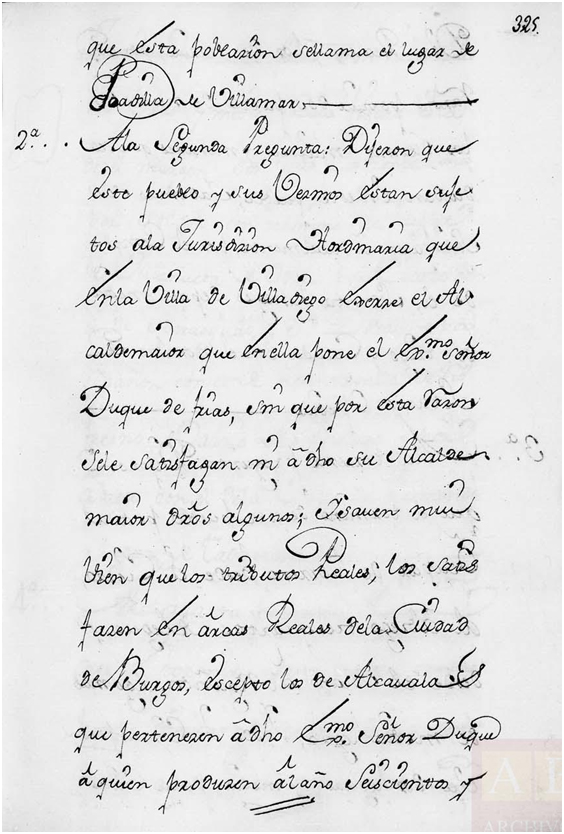 325.
que esta poblazion sellama el lugar de
Padilla de Villamar
2ª.. . Ala Segunda Pregunta: Dijeron que
este pueblo y sus Vezinos estan suje
tos ala Jurisdizion Hordinaria que
enla Villa de Villadiego exerze el Al
caldemaior que enella pone el Exmo. Señor
Duque de frias, sin que por esta Razon
sele satisfagan ni a dho su Alcalde
maior dros algunos; I saven mui
bien que los tributos Reales, los satis
fazen en arcas Reales dela Ciudad
de Burgos, escepto los de Alcauala
que pertenezen a dho Exmo. Señor Duque
a quien produzen al año Seiscientos y
AI
ARCHIV